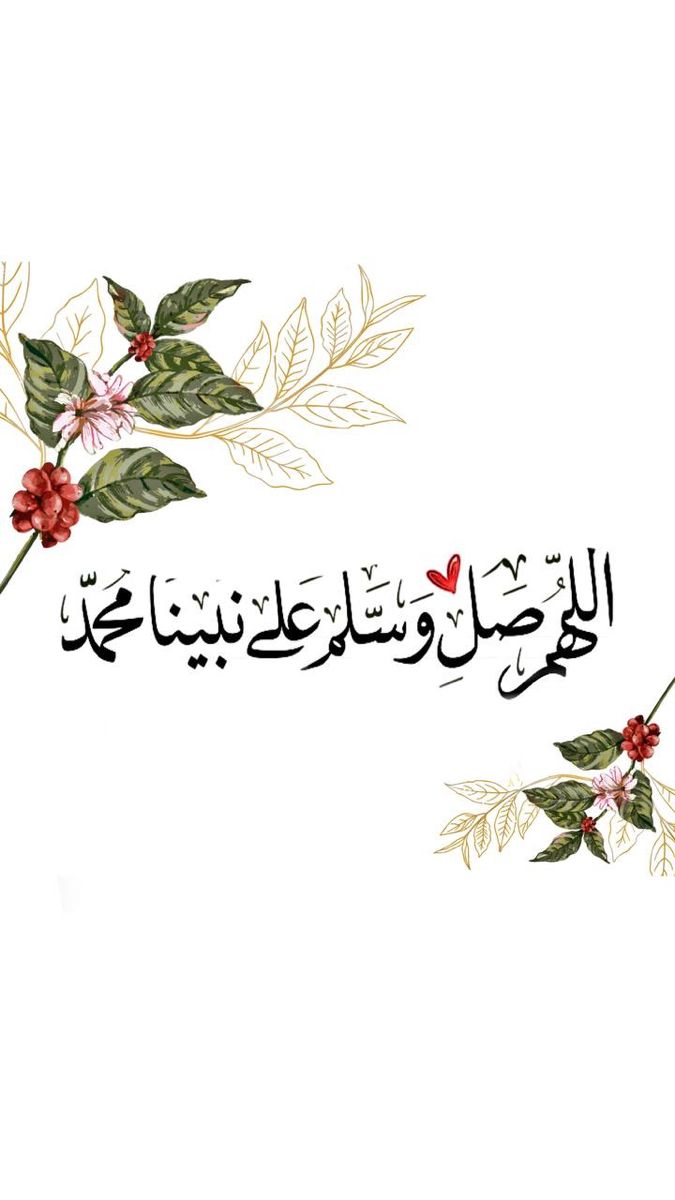 اللهُمَّ صَلِ وَسَلَّم عَلى نَبينَا مُحمَدّ